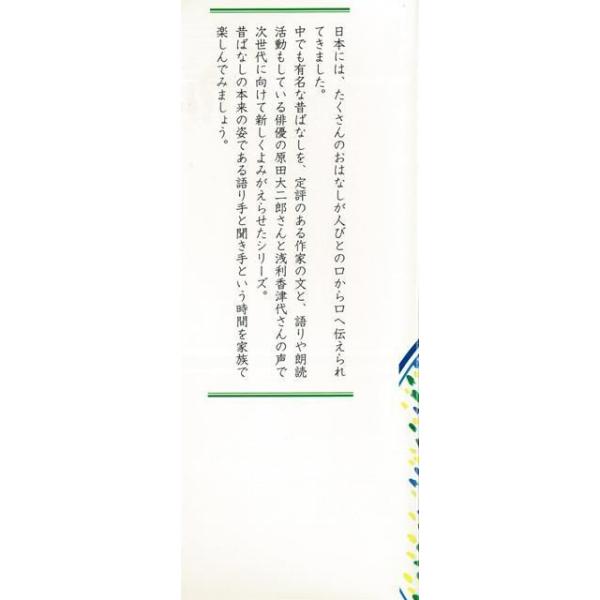 日本には、たくさんのおはなしが人びとの口から口へ伝えられ
てきました。
中でも有名な昔ばなしを、定評のある作家の文と、語りや朗読
活動もしている俳優の原田大二郎さんと浅利香津代さんの声で
次世代に向けて新しくよみがえらせたシリーズ。
昔ばなしの本来の姿である語り手と聞き手という時間を家族で
楽しんでみましょう。